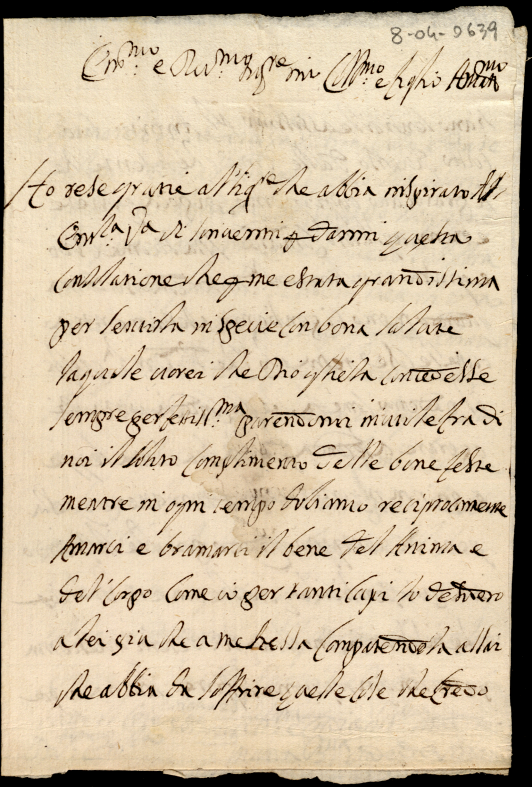 8-04-0639
Em.mo e Rev.mo Sig.re mio Coll.mo e figlio Amat.mo
Ho rese gratie al Sig.re che abbia inspirato All
Em.za V.ra di scrivermi p darmi questa
consolatione che p me e stata grandissima
per sentirla in specie con bona salute
la quale vorei che Dio gliela concedesse
sempre perfetiss.ma parendomi inutile fra di
noi il solito complimento delle bone feste
mentre in ogni tempo doliamo reciprocamente
Amarci e bramarci il bene del Anima e
del Corpo come io per tanti Capi lo desidero
a lei piu che a me stessa compatendola assai
che abbia da soffrire queste cose che credo